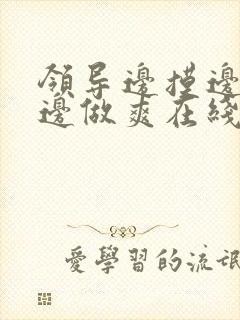 領导邊摸邊
邊做爽在綫
愛學習的流氓